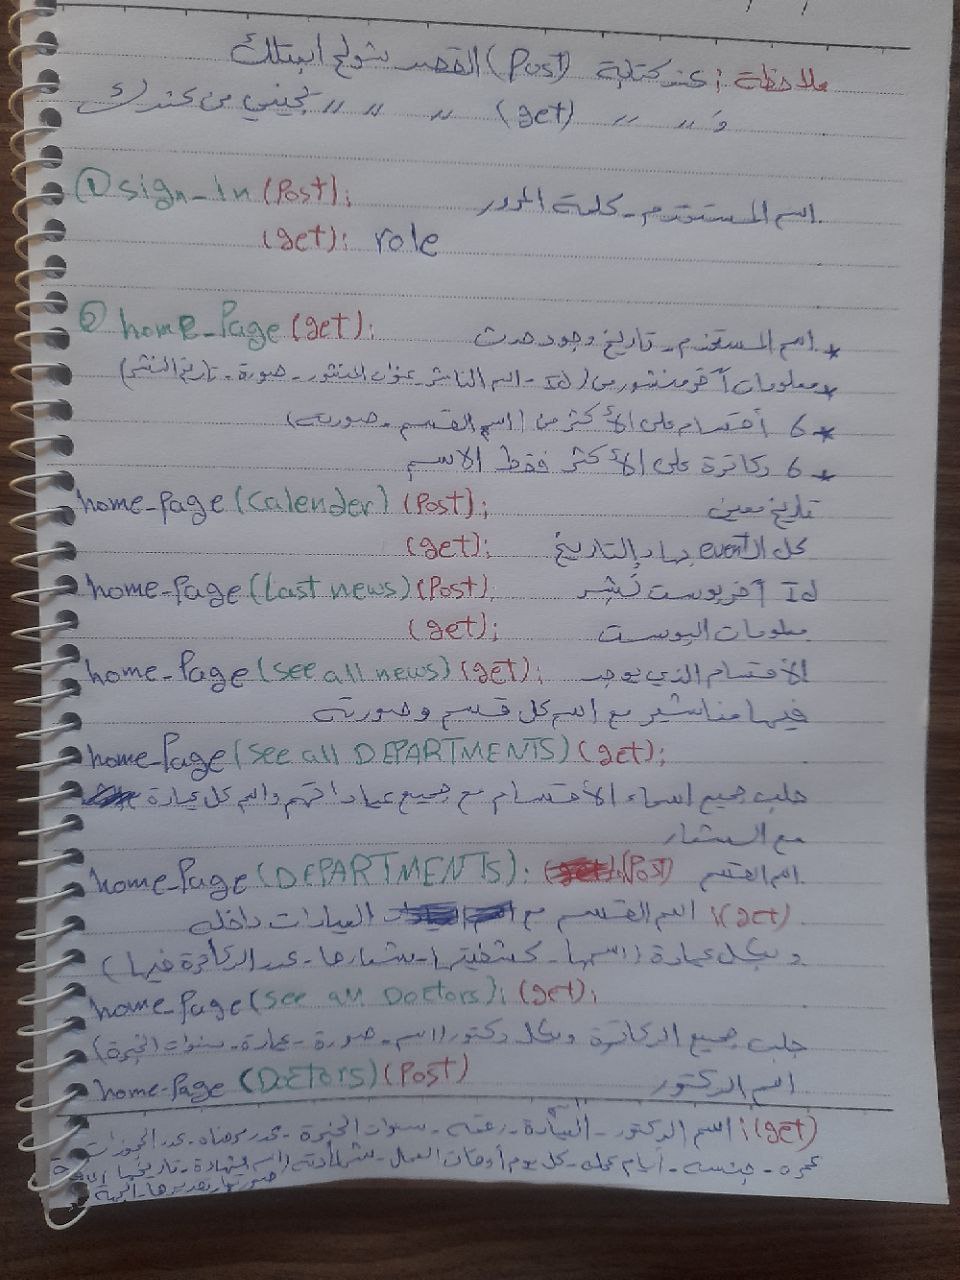 ملاحظة: عند كتابة (Post) القصد شو لح ابعتلك
و ,, ,, (get) ,, ,, ,, يجيني من عندك
① sign_In (Post): اسم المستخدم - كلمة المرور
(get): role
② home_Page (get): * اسم المستخدم - تاريخ وجود حدث
* معلومات آخر منشورين (Id - اسم الناشر - عنوان المنشور - صورة - تاريخ النشر)
* 6 أقسام على الأكثر من (اسم القسم - صورته)
* 6 دكاترة على الأكثر فقط الاسم
home_Page (Calender) (Post): تاريخ معين
(get): كل الـ event بهاد التاريخ
home_Page (Last news) (Post): Id آخر بوست نُشِر
(get): معلومات البوست
home_Page (see all news) (get): الأقسام الذي يوجد
فيها مناشير مع اسم كل قسم وصورته
home_Page (see all DEPARTMENTS) (get):
جلب جميع اسماء الأقسام مع جميع عياداتهم واسم كل عيادة
مع السعر
home_Page (DEPARTMENTS): (Post) اسم القسم
(get): اسم القسم مع العيادات داخله
وبكل عيادة (اسمها - كشفيتها - شعارها - عدد الدكاترة فيها)
home_Page (see all Doctors): (get):
جلب جميع الدكاترة وبكل دكتور (اسم - صورة - عيادة - سنوات الخبرة)
home_Page (Doctors) (Post) اسم الدكتور
(get): اسم الدكتور - العيادة - رقمه - سنوات الخبرة - عدد مرضاه - عدد الحجوزات
عمره - جنسه - أيام عمله - كل يوم أوقات العمل - شهاداته (اسم الشهادة - تاريخها